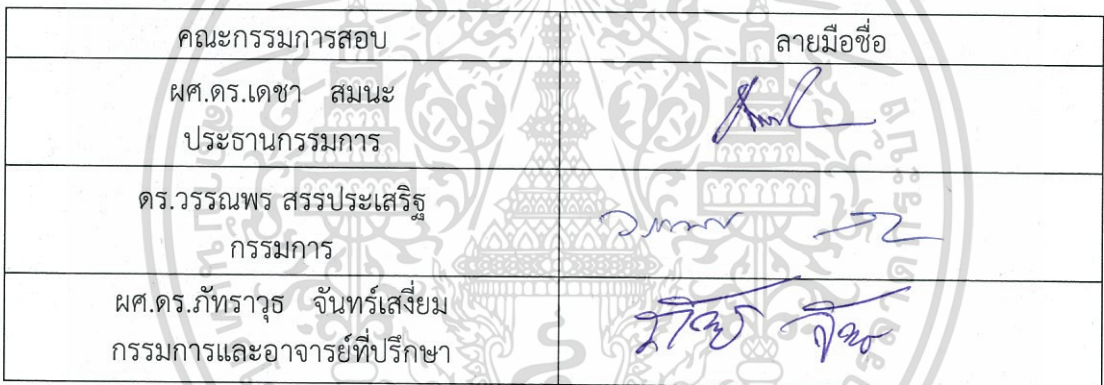 คณะกรรมการสอบ ลายมือชื่อ
ผศ.ดร.เดชา สมนะ
ประธานกรรมการ
ดร.วรรณพร สรรประเสริฐ
กรรมการ
ผศ.ดร.ภัทราวุธ จันทร์เสงี่ยม
กรรมการและอาจารย์ที่ปรึกษา